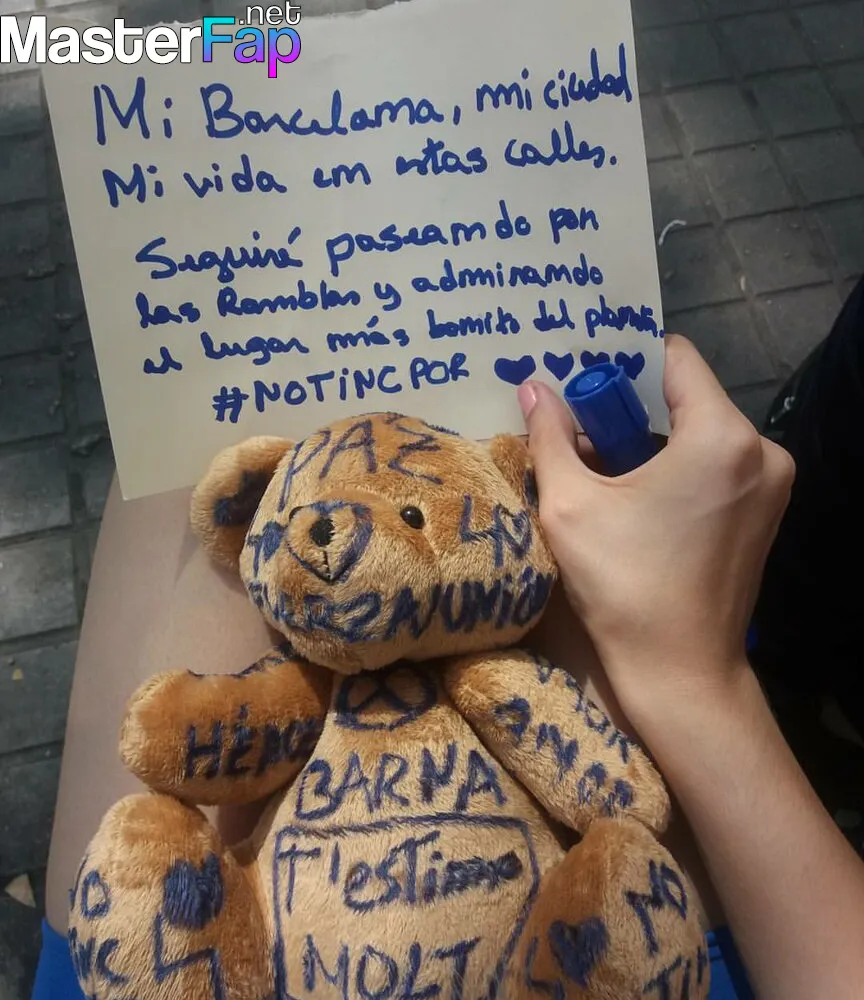 MasterFap.net
Mi Barcelona, mi ciudad
Mi vida en estas calles.
Seguiré paseando por
las Ramblas y admirando
el lugar más bonito del planeta.
#NOTINCPOR
PAZ
FUERZA UNIÓN
BARNA
T'estimo
MOLT
NO
NO
TI